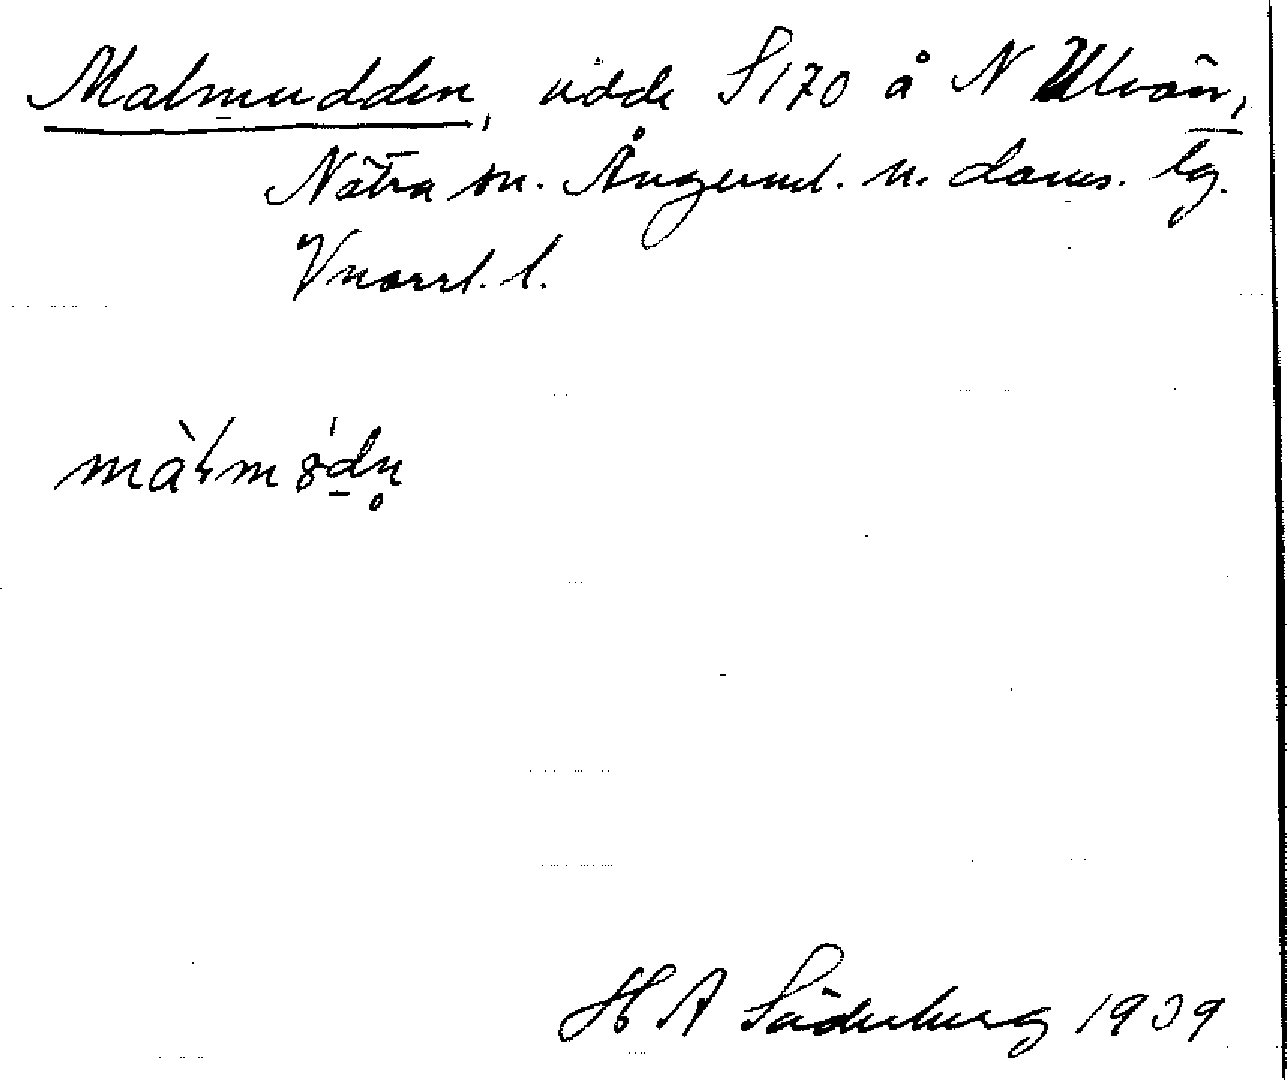 Malmudden, udde S170 å N Ulvön,
Nätra sn. Ångerml. n. doms. lg.
Vnorrl. l.
màɫmödn̥
H A Söderberg 1939